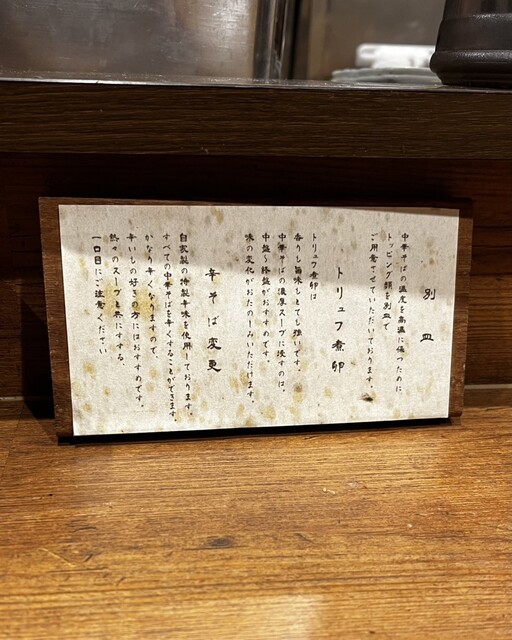 別皿
中華そばの温度を高温に保つために
トッピング類を別皿で
ご用意させていただいております。
トリュフ煮卵
トリュフ煮卵は
香りも旨味もとても強いです。
中華そばの濃厚スープに浸すのは、
中盤〜終盤がおすすめです。
味の変化がおたのしみいただけます。
辛そば変更
自家製の特製辛味を使用しております。
すべての中華そばを辛くすることができます。
かなり辛くなりますので、
辛いもの好きの方にはおすすめです。
熱々のスープと共にすする
一口目にご注意ください